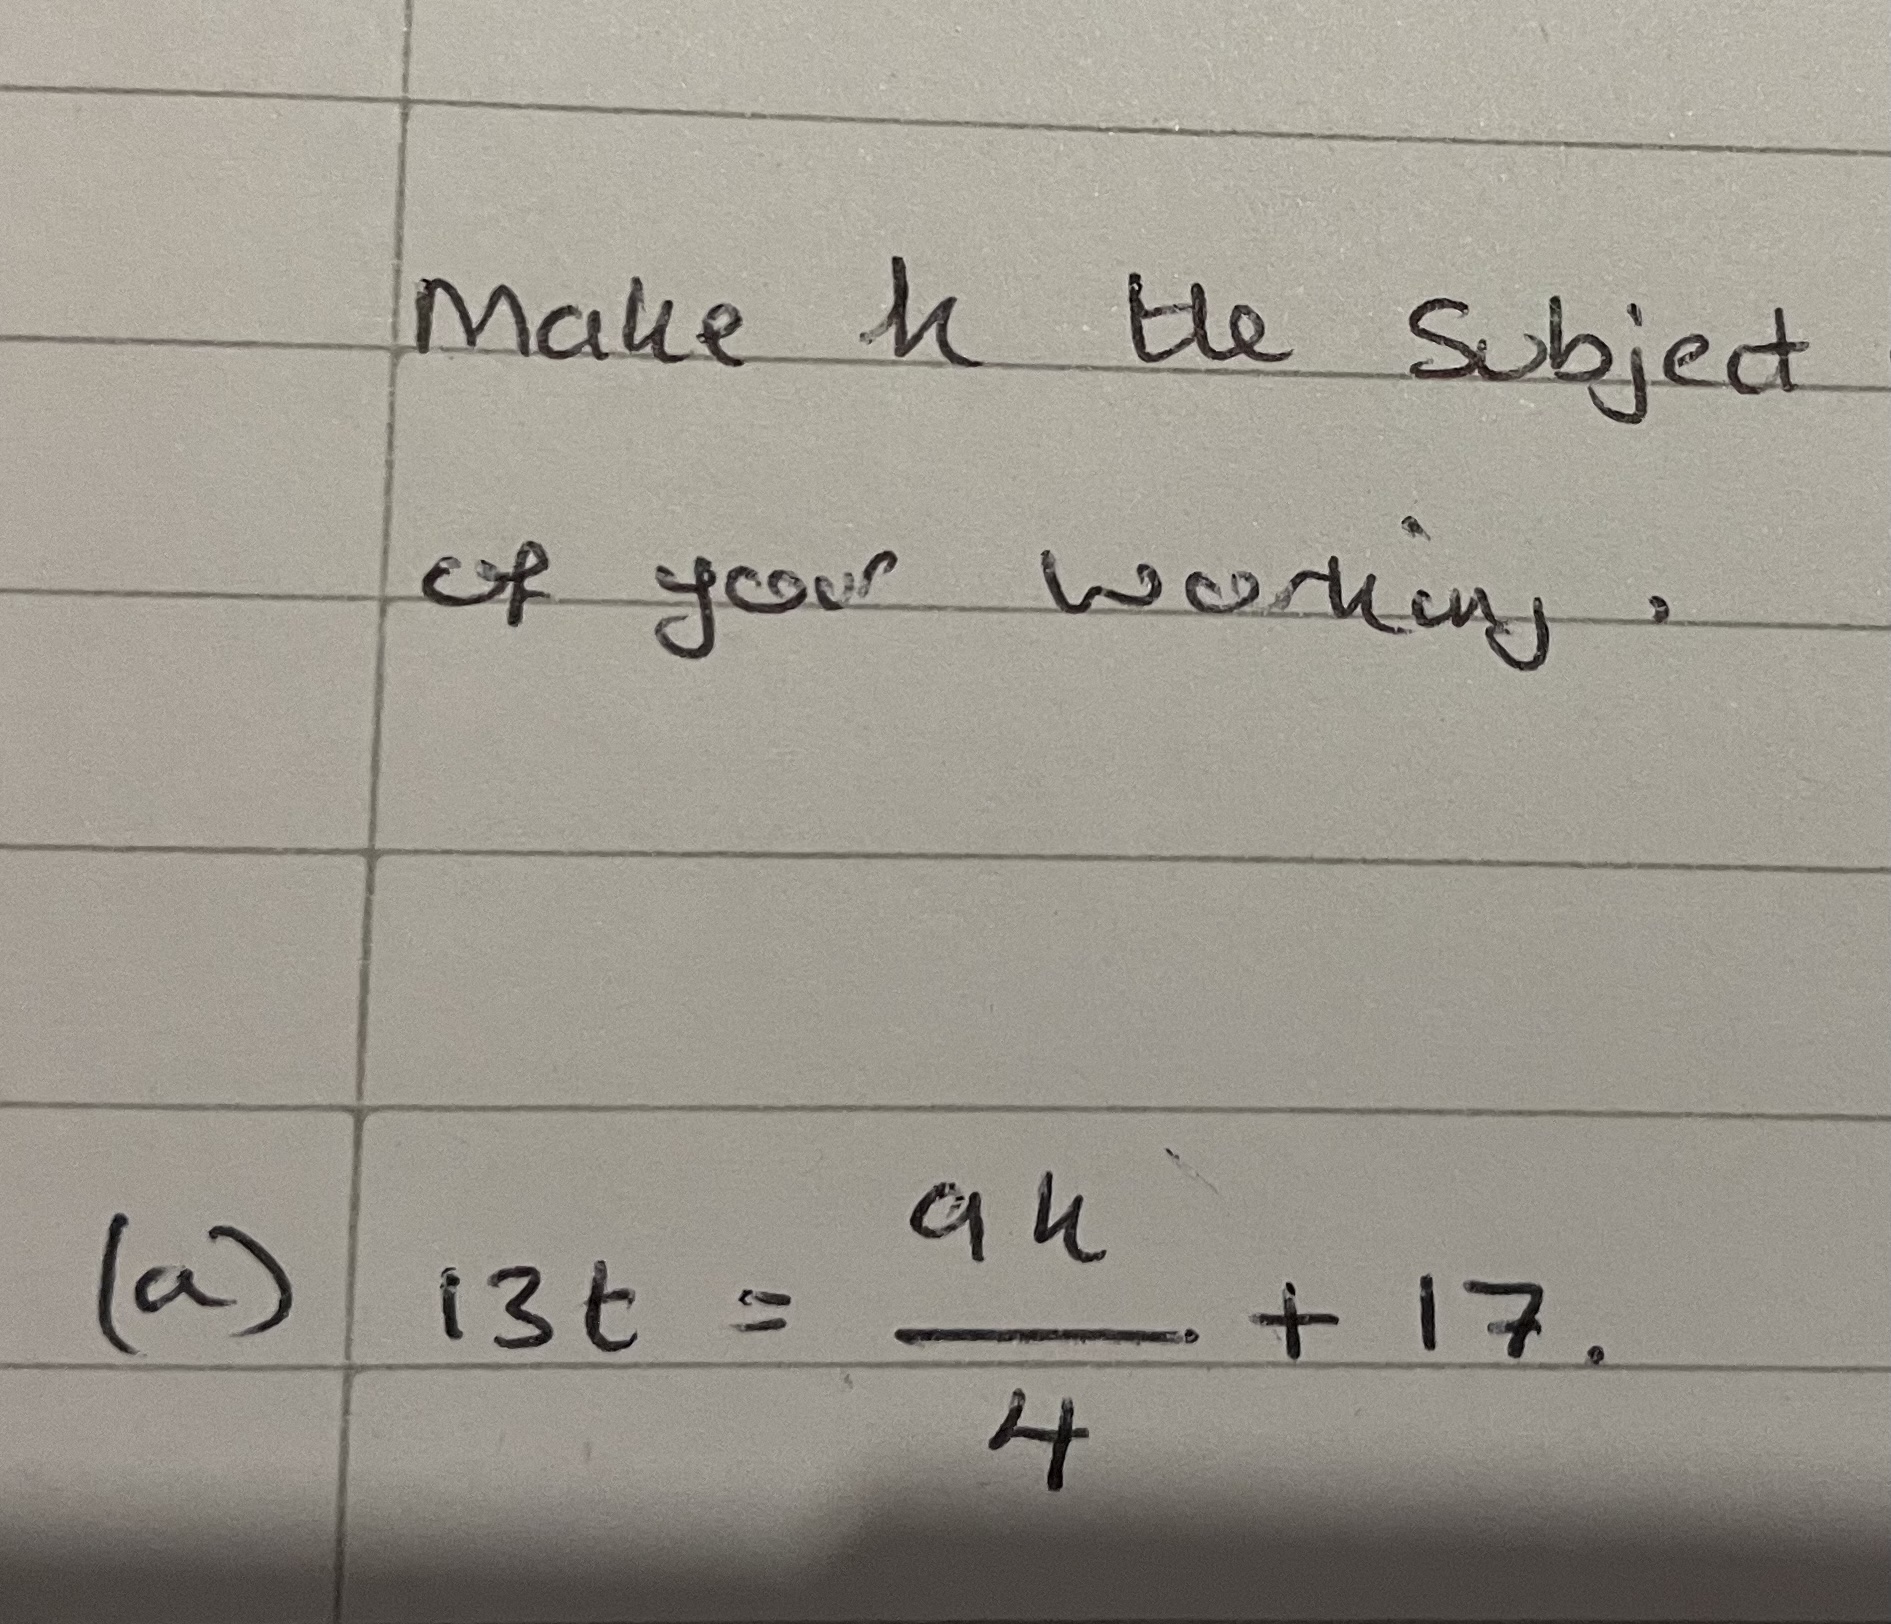 Make k the subject
of your working.
(a) 13t = 9k/4 + 17.